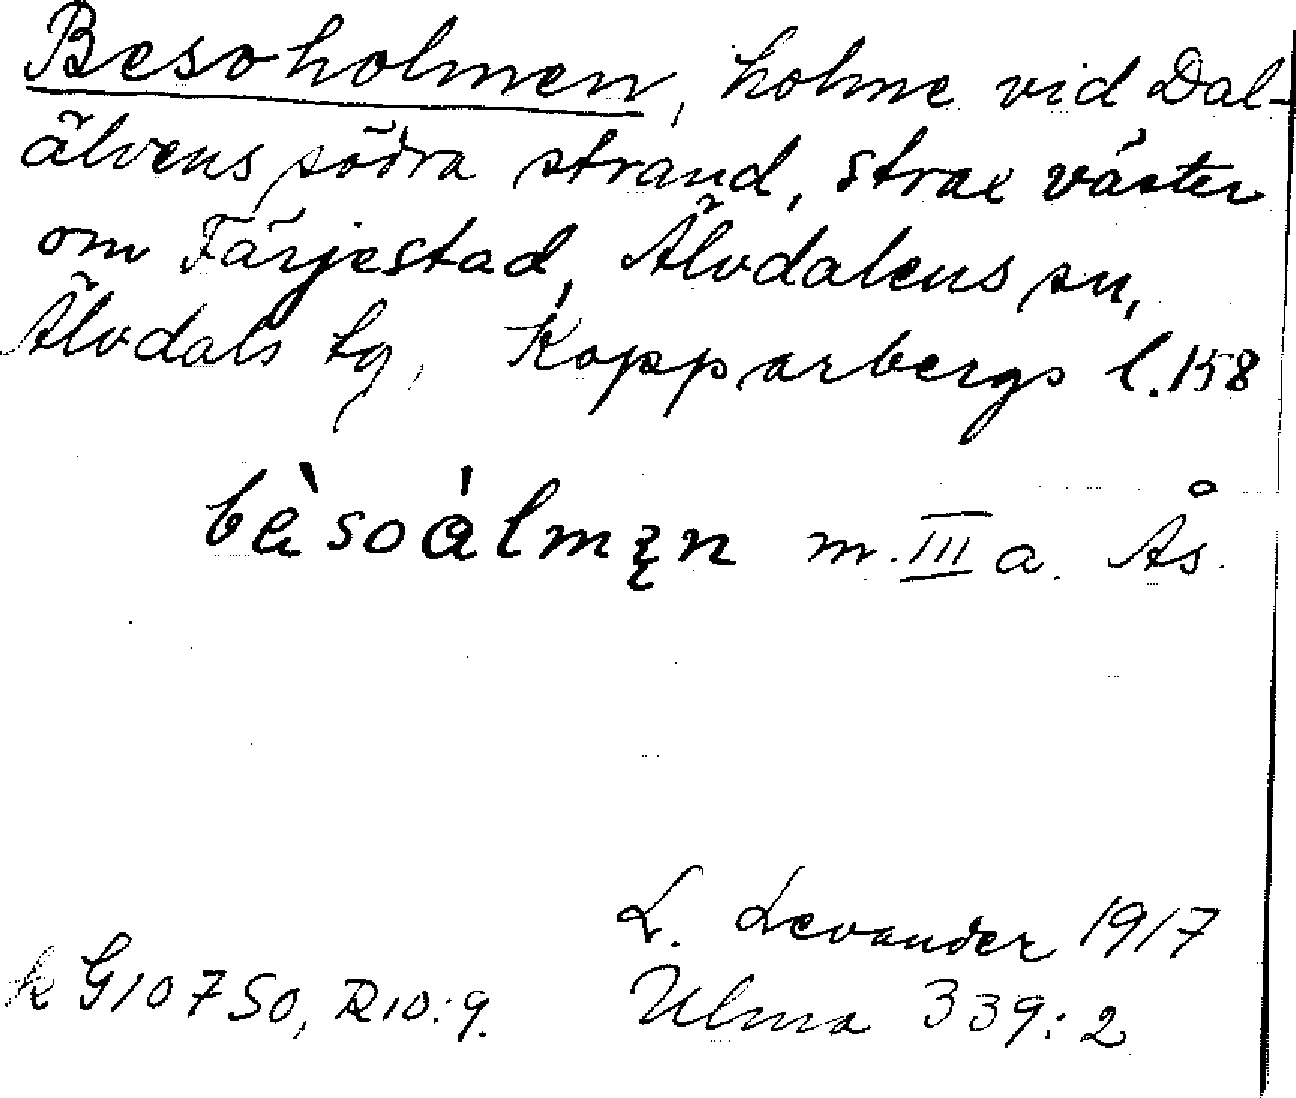 Besoholmen, holme vid Dal-
älvens södra strand, strax väster
om Färjestad, Älvdalens sn,
Älvdals tg, Kopparbergs l. 158
bə̀soàlmęn m. III a. Ås.
L. Levander 1917
k G10750, R10:9. Ulma 339:2